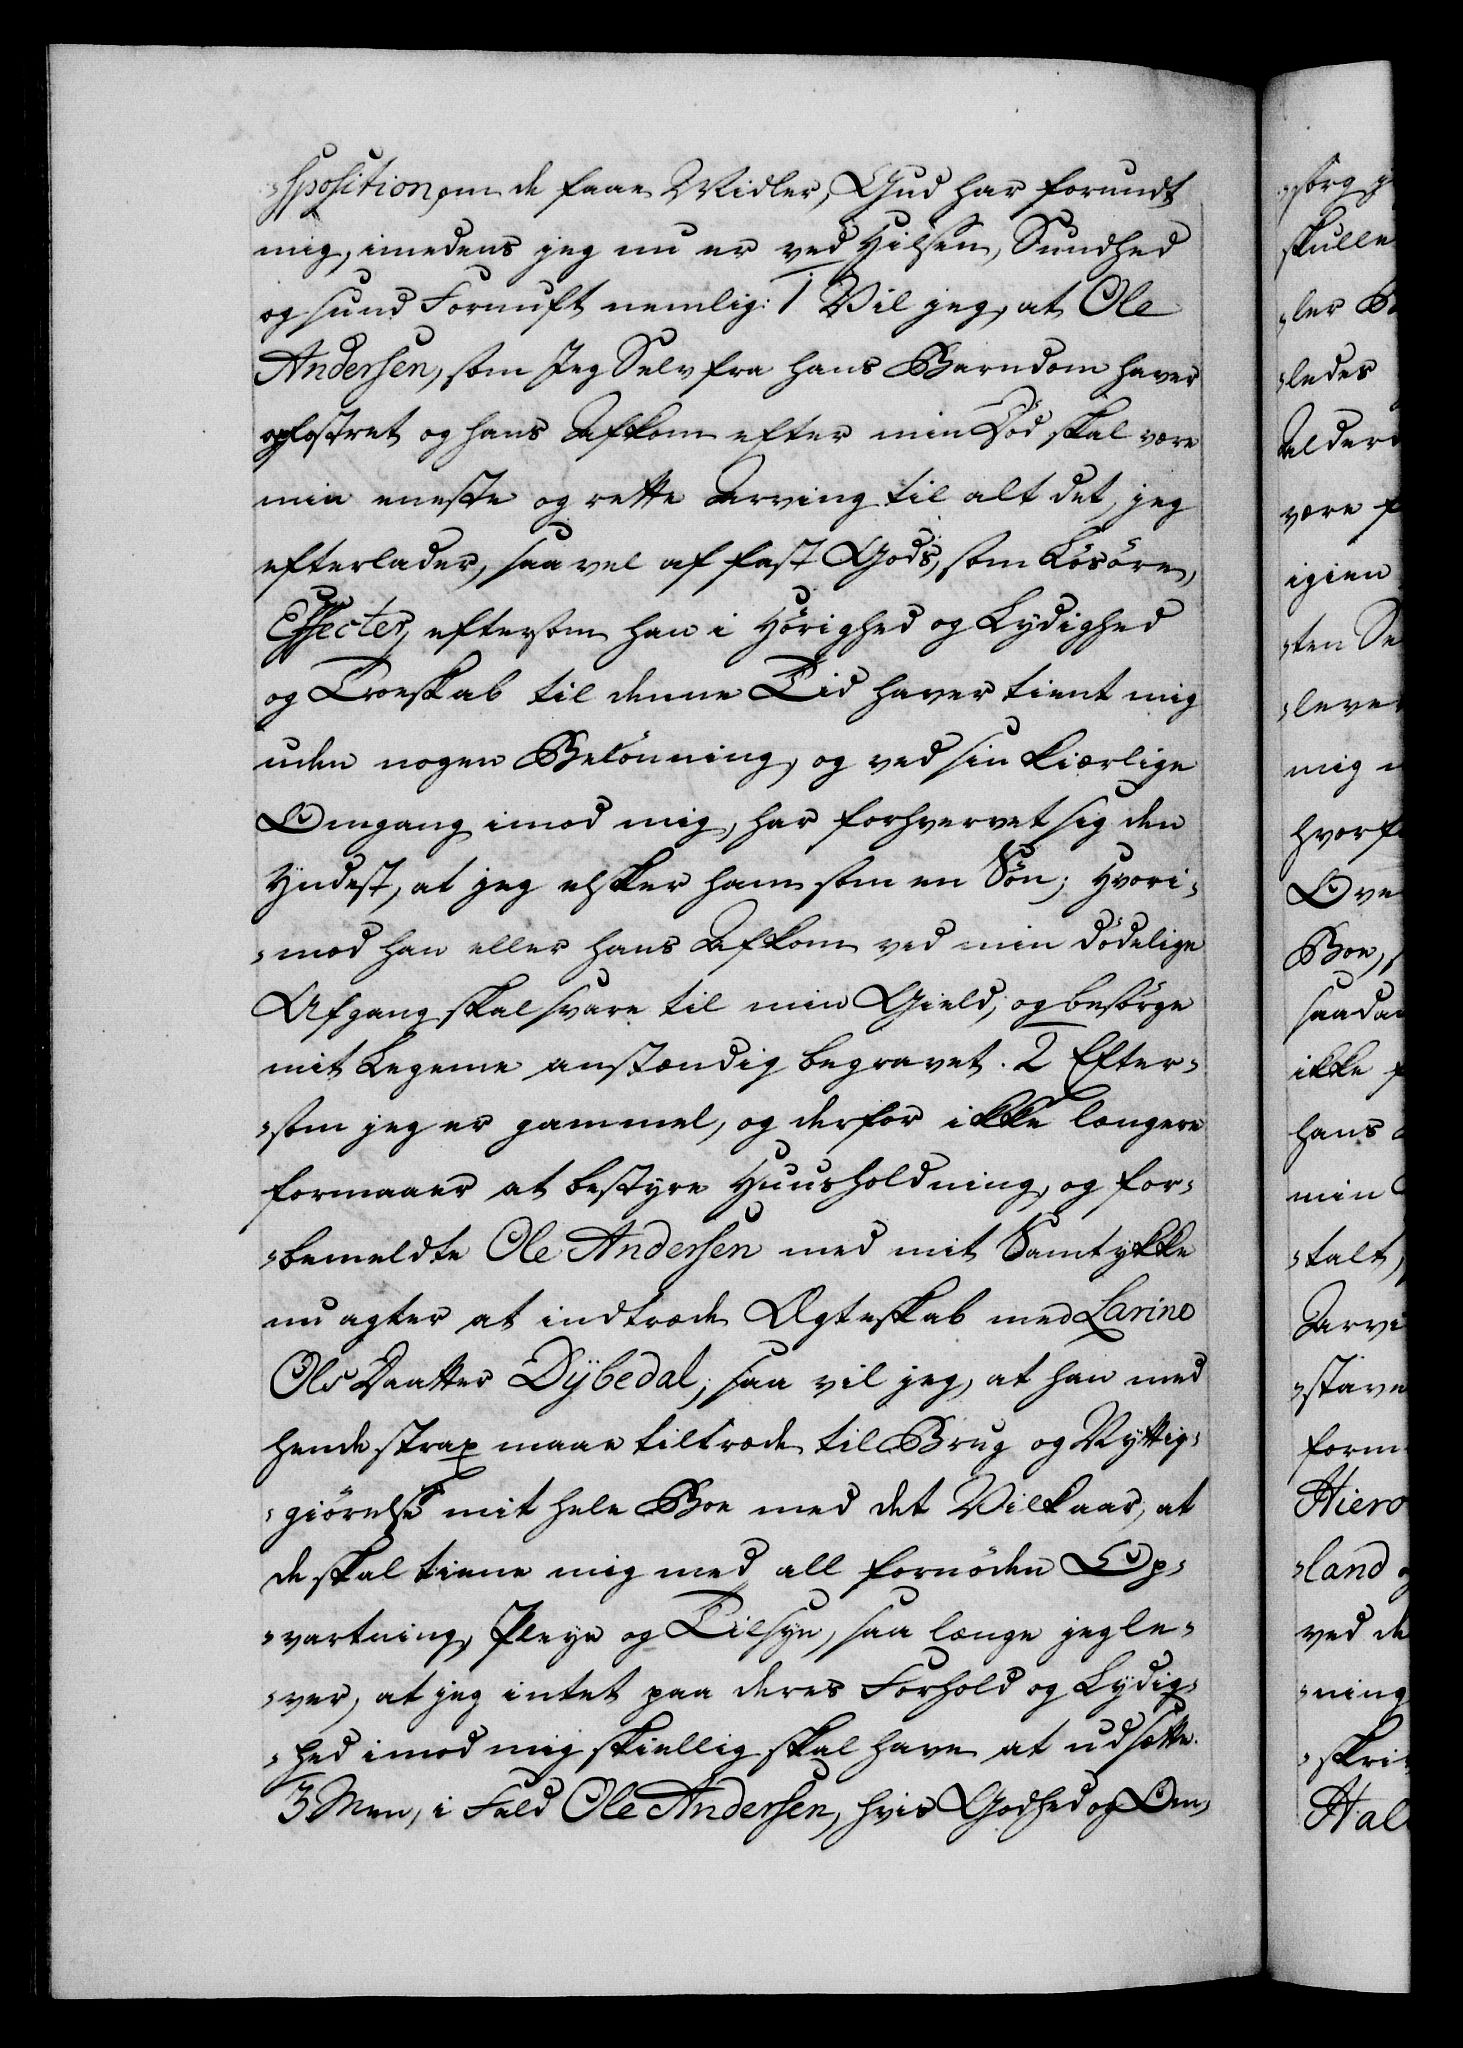 -sposition, om de faae Midler, Gud har forundt
mig, imedens jeg nu er ved Hilsen, Sundhed
og sund Fornuft nemlig: 1 Vil jeg, at Ole
Andersen, som Jeg Selv fra hans Barndom haver
opfostret og hans Afkom efter min Död skal være
min eneste og rette Arving til alt det, jeg
efterlader, saa vel af fast Gods, som Lösöre,
Effecter, eftersom han i Hörighed og Lydighed
og Troeskab til denne Tid haver tient mig
uden nogen Belönning, og ved sin kiærlige
Omgang imod mig, har forhvervet sig den
Yndest, at jeg elsker ham som en Sön; Hvori-
-mod han eller hans Afkom ved min dödelige
Afgang skal svare til min Gield, og besörge
mit Legeme anstændig begravet. 2 Efter-
-som jeg er gammel, og derfor ikke længere
formaaer at bestyre Huusholdning, og for-
-bemeldte Ole Andersen med mit Samtykke
nu agter at indtræde Ægteskab med Larine
Ols Daatter Dÿbedal, saa vil jeg, at han med
hende strax maae tiltræde til Brug og Nyttig-
-giörelse mit hele Boe med det Vilkaar, at
de skal tiene mig med all fornöden Op-
-vartning, Pleye og Tilsyn, saa længe jeg le-
-ver, at jeg intet paa deres Forhold og Lydig-
-hed imod mig skiellig skal have at udsætte.
3 Men, i Fald Ole Andersen, hvis Godhed og Om-
-sorg
skulle
-ler
-ledes
Alder
være
igien
-ten
-leve
mig
hvorf
Ove
Boe,
saada
ikke
hans
min
-talt,
Arvi
-stave
form
Hiero
-land
ved de
-ning
-skri
Hal